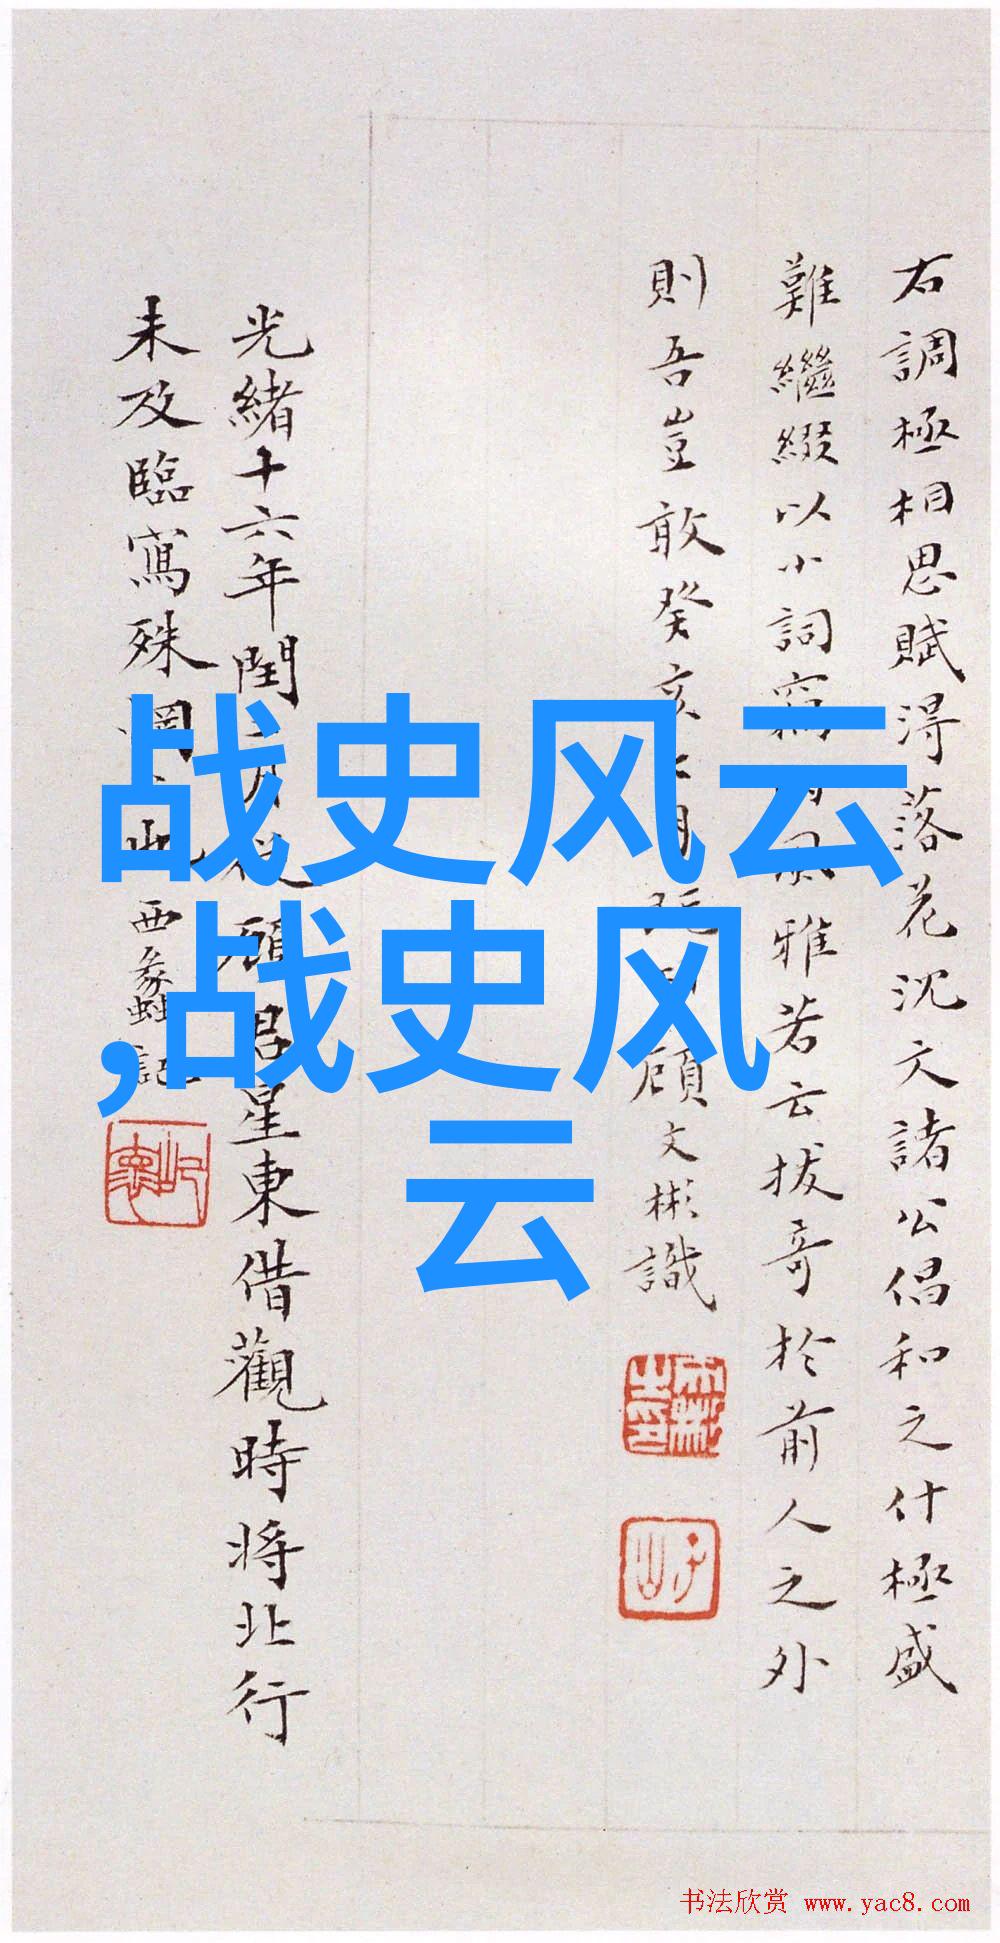 右調極相思賦得落花沈文諸公倡和之什極盛
難繼綴以小詞竊風雅若云拔奇於前人之外
則吾豈敢癸亥七月 顧文彬識
光緒十六年閏月從顧君星東借觀時將北行
未及臨寫殊惘 西蠡記
战史风云
,战史风
云
书法欣赏 www.yac8.com